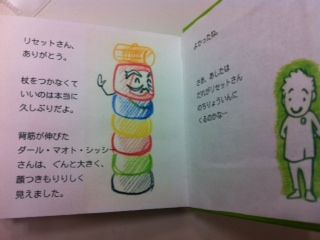 リセットさん、
ありがとう。
杖をつかなくて
いいのは本当に
久しぶりだよ。
背筋が伸びた
ダール・マオト・シッシー
さんは、ぐんと大きく、
顔つきもりりしく
見えました。
よかったね。
さあ、あしたは
だれがリセットさん
のちりょういんに
くるのかな…